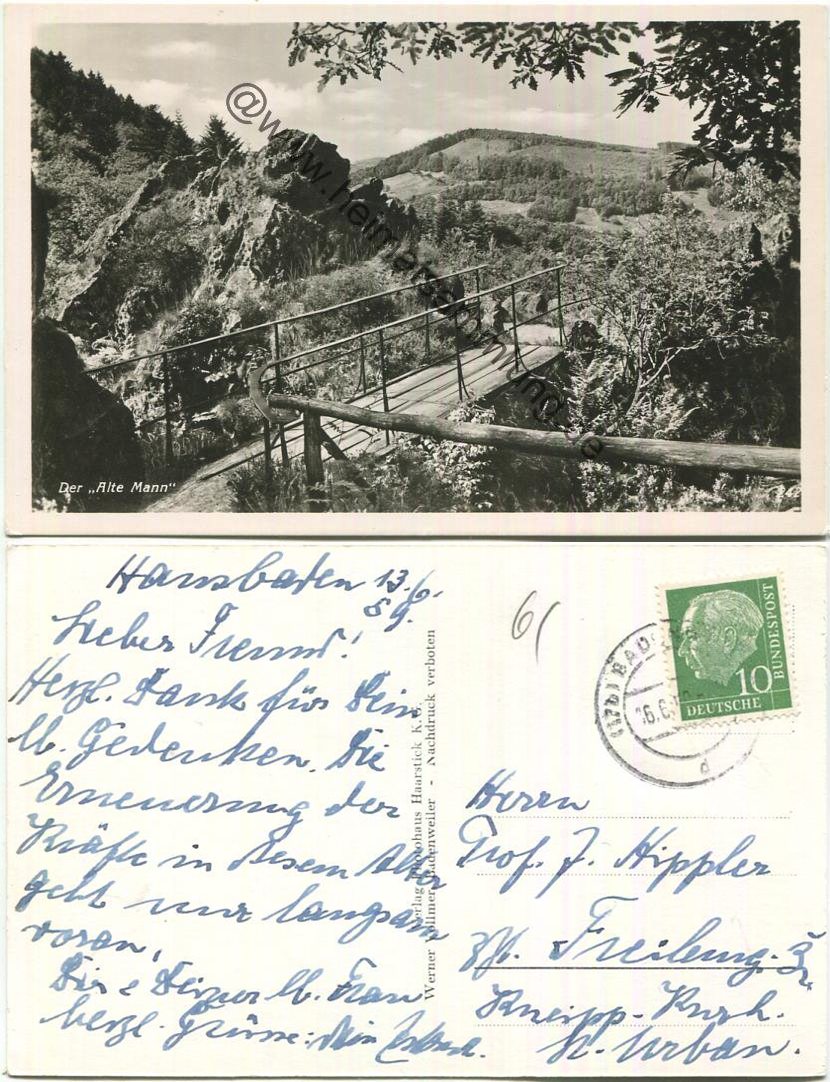 @www.heimatsammlung.de
Der „Alte Mann“
Hansbaden 13./6.
59.
Lieber Freund!
Herzl. Dank für Dein
lb. Gedenken. Die
Erneuerung der
Kräfte in diesem Alter
geht nur langsam
voran,
Dir & Deiner lb. Frau
herzl. Grüsse: Dein
Verlag Photohaus Haarstick K.G.
Werner Vollmer, Badenweiler - Nachdruck verboten
6
DEUTSCHE BUNDESPOST
10
(17b) BAD
d
Herrn
Prof. J. Hippler
zZt. Freiburg i. Br.
Kneipp-Kurh.
St. Urban.